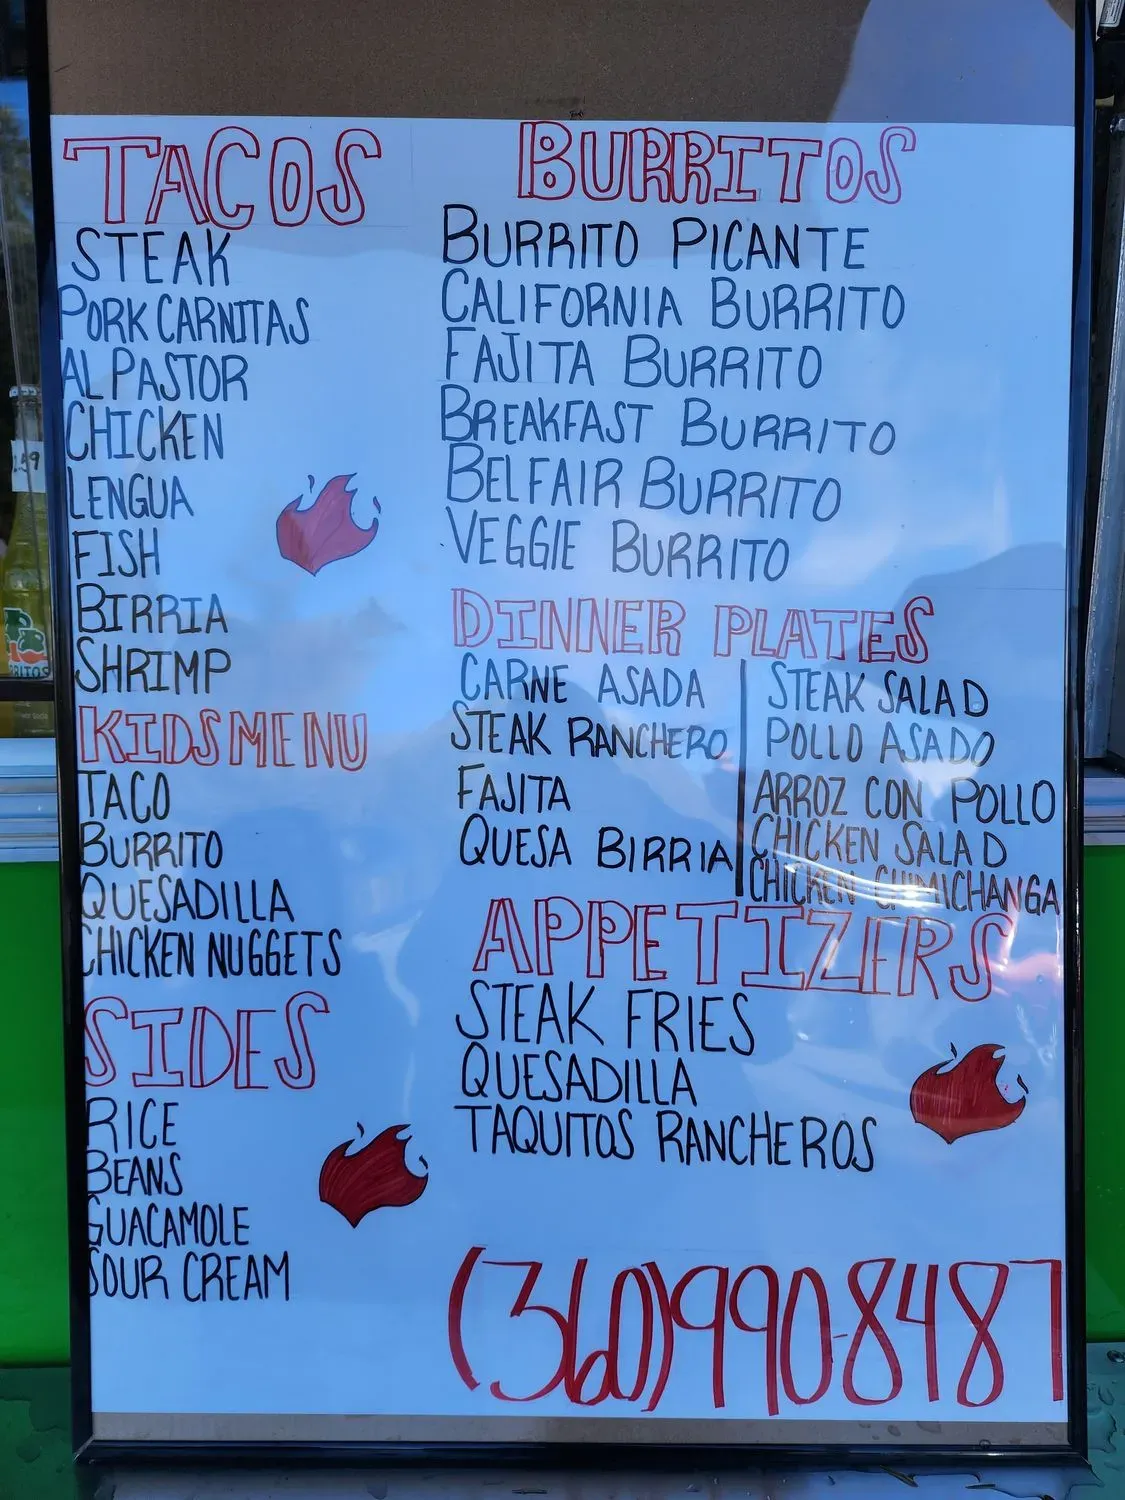 TACOS
STEAK
PORK CARNITAS
AL PASTOR
CHICKEN
LENGUA
FISH
BIRRIA
SHRIMP
KIDS MENU
TACO
BURRITO
QUESADILLA
CHICKEN NUGGETS
SIDES
RICE
BEANS
GUACAMOLE
SOUR CREAM
BURRITOS
BURRITO PICANTE
CALIFORNIA BURRITO
FAJITA BURRITO
BREAKFAST BURRITO
BELFAIR BURRITO
VEGGIE BURRITO
DINNER PLATES
CARNE ASADA
STEAK RANCHERO
FAJITA
QUESA BIRRIA
STEAK SALAD
POLLO ASADO
ARROZ CON POLLO
CHICKEN SALAD
CHICKEN CHIMICHANGA
APPETIZERS
STEAK FRIES
QUESADILLA
TAQUITOS RANCHEROS
(360)990-8487